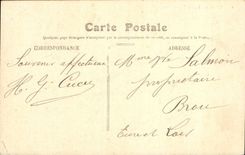 Carte Postale
CORRESPONDANCE
ADRESSE
Souvenir affectueux
H. G.
Mme Vve Salmon
propriétaire
Brou
Eure et Loir